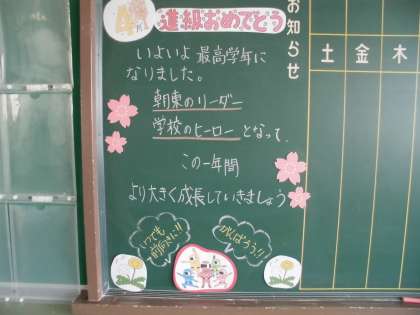 4月
進級おめでとう
いよいよ 最高学年に
なりました。
朝東のリーダー
学校のヒーロー となって、
この一年間
より大きく成長していきましょう
いつでも
前向きに!!
がんばろう!!
お知らせ
土 金 木